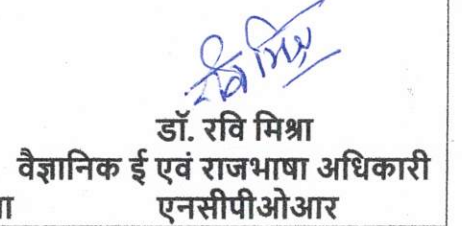 रवि मिश्रा
डॉ. रवि मिश्रा
वैज्ञानिक ई एवं राजभाषा अधिकारी
एनसीपीओआर